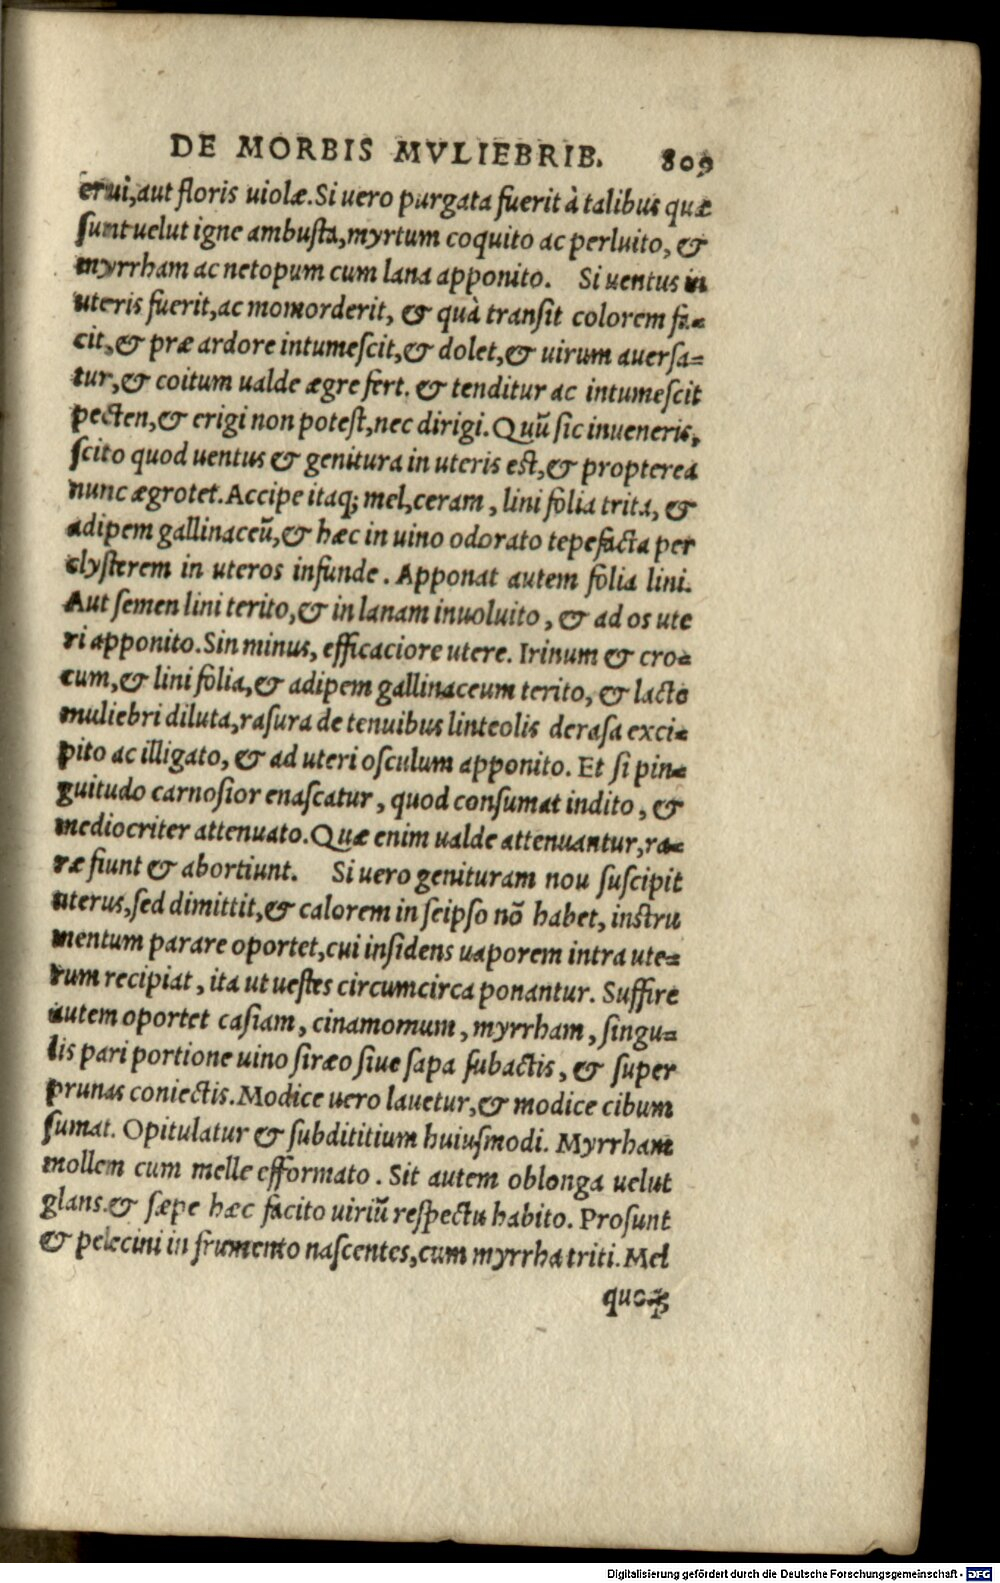 DE MORBIS MVLIEBRIB. 809
erui, aut floris uiolæ. Si uero purgata fuerit à talibus quæ
sunt uelut igne ambusta, myrtum coquito ac perluito, &
myrrham ac netopum cum lana apponito. Si uentus in
uteris fuerit, ac momorderit, & quà transit colorem fa-
cit, & præ ardore intumescit, & dolet, & uirum auersa-
tur, & coitum ualde ægre fert, & tenditur ac intumescit
pecten, & erigi non potest, nec dirigi. Quũ sic inueneris,
scito quod uentus & genitura in uteris est, & propterea
nunc ægrotet. Accipe itaq; mel, ceram, lini folia trita, &
adipem gallinaceũ, & hæc in uino odorato tepefacta per
clysterem in uteros infunde. Apponat autem folia lini.
Aut semen lini terito, & in lanam inuoluito, & ad os ute
ri apponito. Sin minus, efficaciore utere. Irinum & cro-
cum, & lini folia, & adipem gallinaceum terito, & lacte
muliebri diluta, rasura de tenuibus linteolis derasa exci-
pito ac illigato, & ad uteri osculum apponito. Et si pin-
guitudo carnosior enascatur, quod consumat indito, &
mediocriter attenuato. Quæ enim ualde attenuantur, ra-
ræ fiunt & abortiunt. Si uero genituram nou suscipit
uterus, sed dimittit, & calorem in seipso nõ habet, instru
mentum parare oportet, cui insidens uaporem intra ute-
rum recipiat, ita ut uestes circumcirca ponantur. Suffire
autem oportet casiam, cinamomum, myrrham, singu-
lis pari portione uino siræo siue sapa subactis, & super
prunas coniectis. Modice uero lauetur, & modice cibum
sumat. Opitulatur & subdititium huiusmodi. Myrrham
mollem cum melle efformato. Sit autem oblonga uelut
glans. & sæpe hæc facito uiriũ respectu habito. Prosunt
& pelecini in frumento nascentes, cum myrrha triti. Mel
quoq;
Digitalisierung gefördert durch die Deutsche Forschungsgemeinschaft - DFG